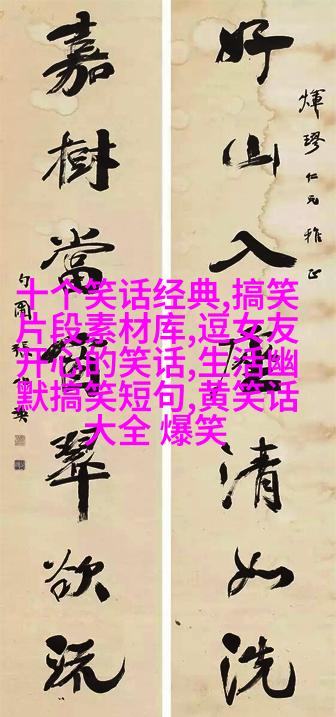 煇璆仁兄雅正
好山入座清如洗
嘉樹當窗翠欲流
勺圃張
十个笑话经典,搞笑
片段素材库,逗女友
开心的笑话,生活幽
默搞笑短句,黄笑话
大全 爆笑